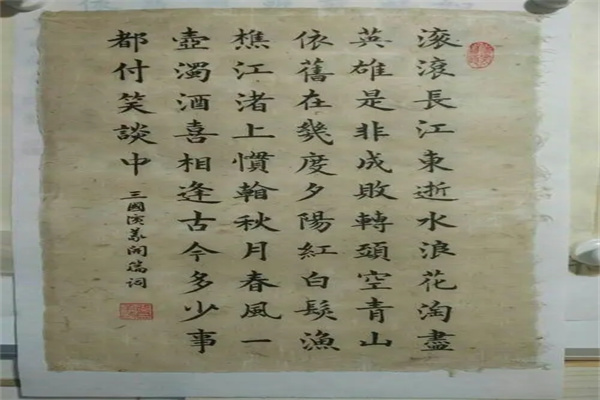 滚滚長江東逝水浪花淘盡
英雄是非成敗轉頭空青山
依舊在幾度夕陽紅白髮漁
樵江渚上慣翰秋月春風一
壺濁酒喜相逢古今多少事
都付笑談中
三國演义開篇词